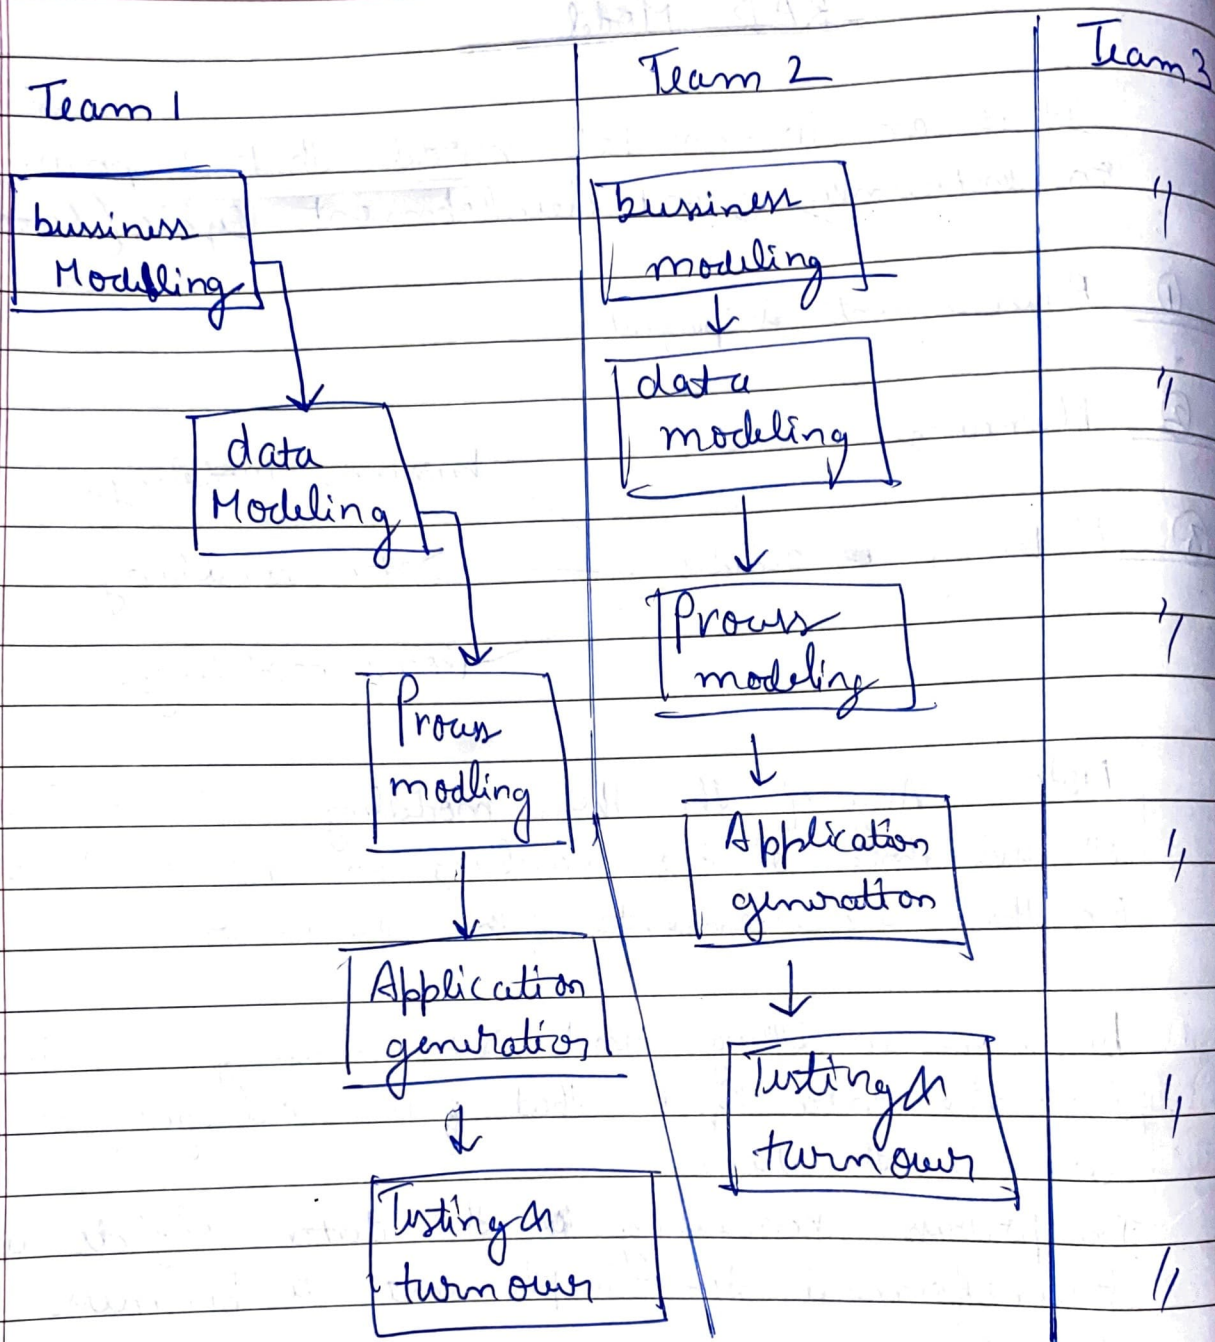 Team 1
bussiness
Modelling
data
Modeling
Process
modling
Application
generation
Testing &
turn over
Team 2
bussiness
modeling
data
modeling
Process
modeling
Application
generation
Testing &
turn over
Team 3
"
"
"
"
"
"